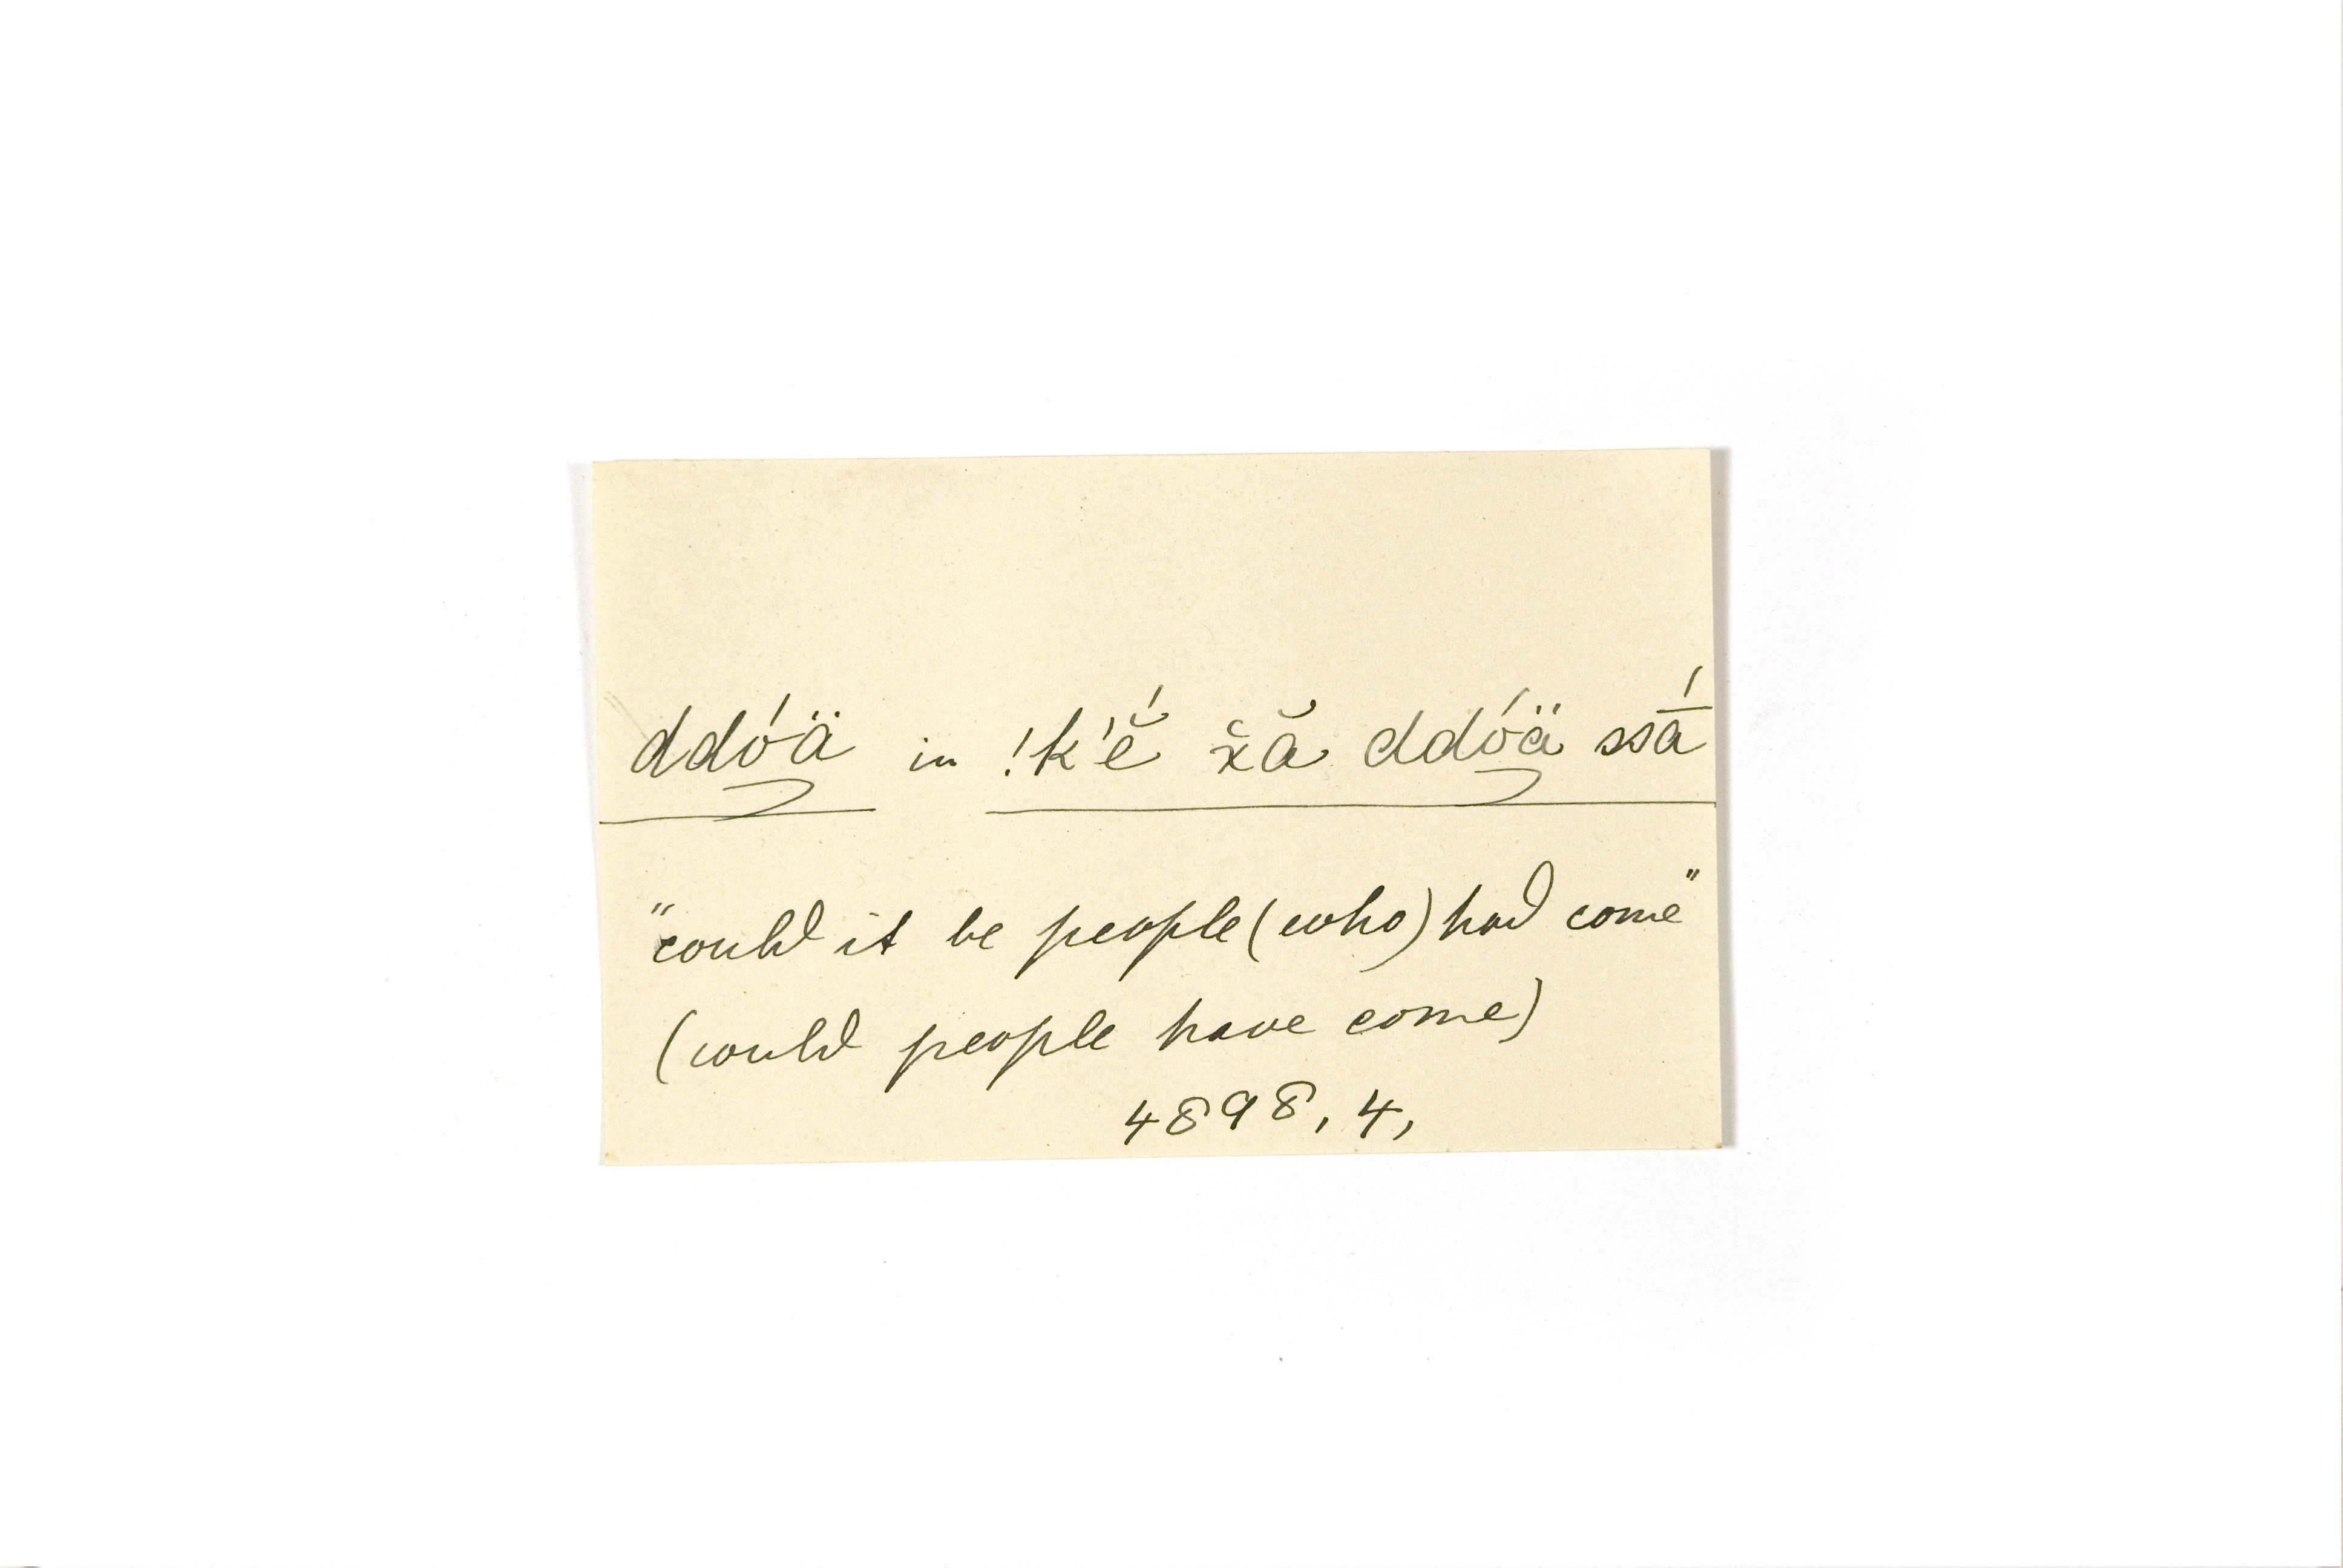 ddóä in !k'ĕ́ x̌ă ddóä ssā́
"could it be people (who) had come"
(could people have come)
4898, 4,